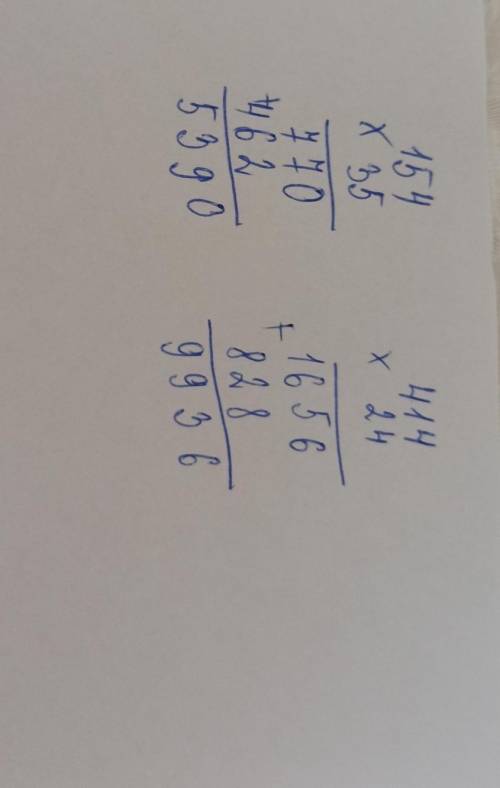 154
× 35
770
+462
5390
414
× 24
1656
+
828
9936